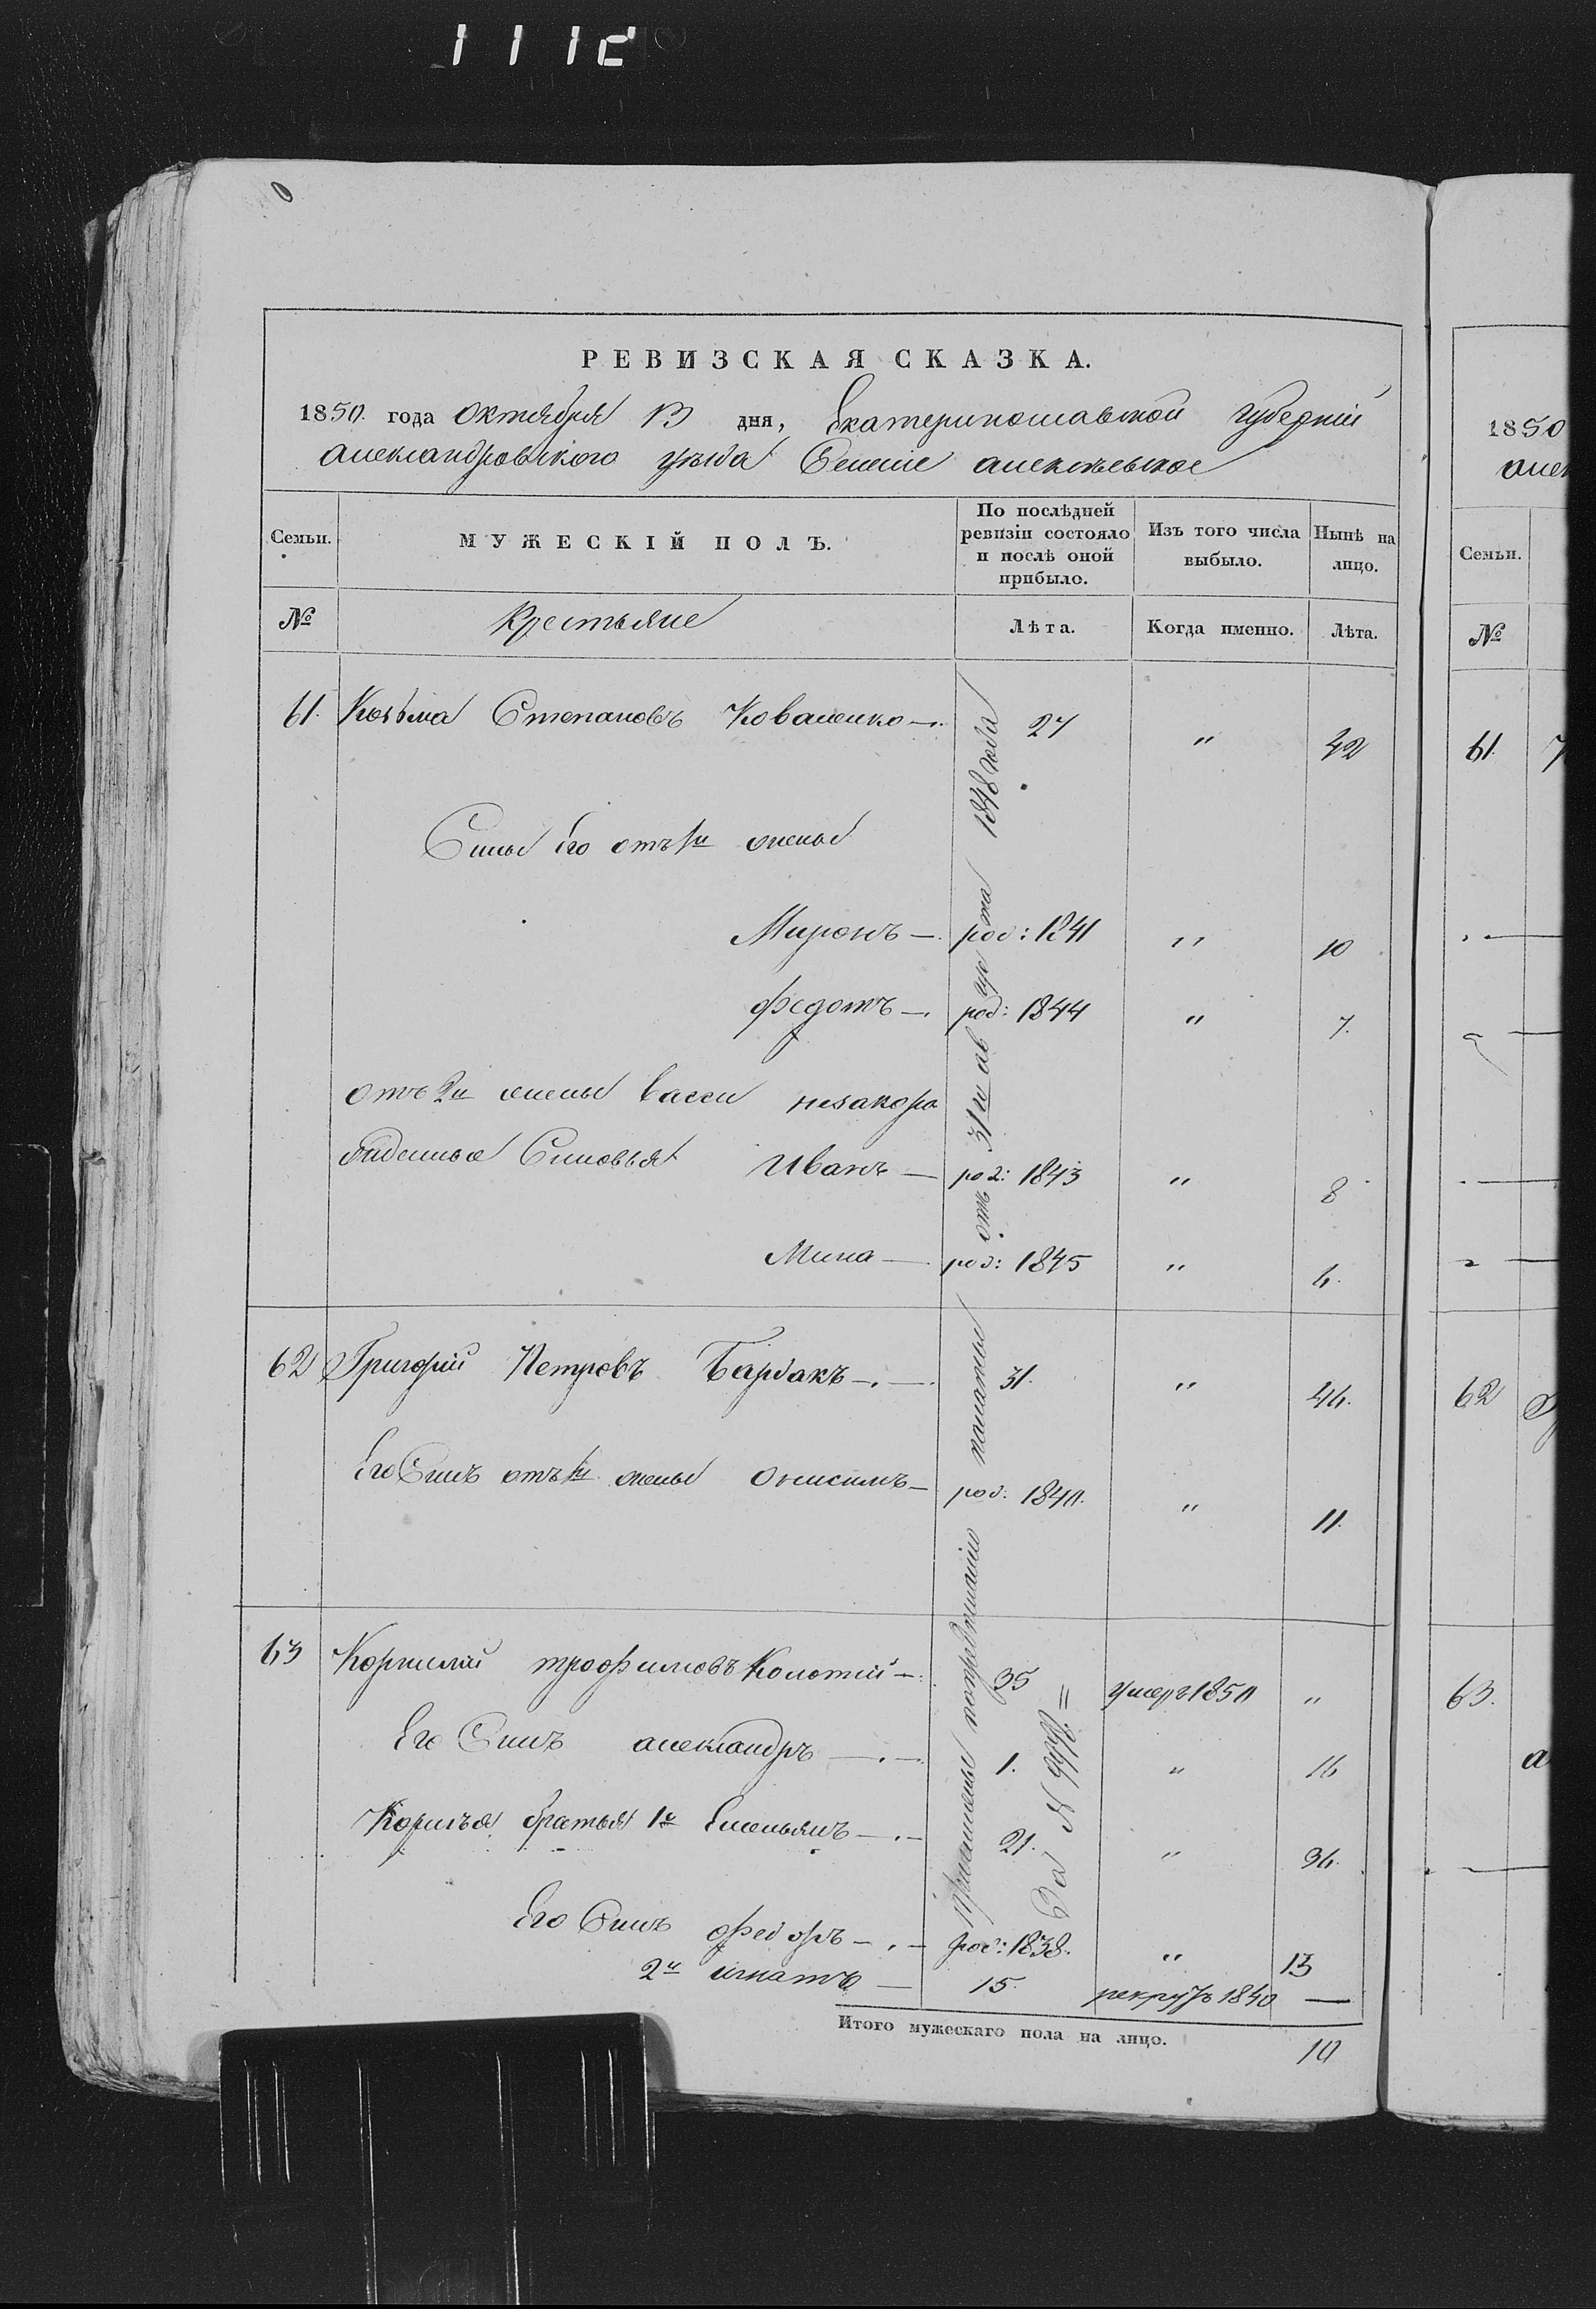 РЕВИЗСКАЯ СКАЗКА.
1850. года Октября 13 дня, Екатеринославской губерніи
александровского уезда Селеніе
Семьи.
МУЖЕСКІЙ ПОЛЪ.
По послѣдней ревизіи состояло и послѣ оной прибыло.
Изъ того числа выбыло.
Нынѣ на лицо.
№ Крестьяне Лѣта. Когда именно. Лѣта.
61. Козьма Степановъ Коваленко 27 " 42
Сины Его отъ 1й жены
Миронъ — род: 1841 " 10
Федотъ — род: 1844 " 7.
отъ 2й жены Васси незакоро
Синовья Иванъ — род: 1843 " 8
Мина — род: 1845 " 6.
62 Григорій Петровъ Бардакъ 31. " 46.
Его Синъ отъ 1й жены Онисимъ — род: 1840. " 11.
63 Корнилій трофимовъ Колотій 35 умеръ 1850 "
Его Синъ александръ 1. " 16
Корнѣя братья 1й Емельянъ 21. " 36.
Его Синъ федоръ род: 1838. " 13
2й игнатъ — 15. рекрутъ 1840 —
Итого мужескаго пола на лицо. 10
отъ 31го августа 1848 года
палаты
За №
1850
Семьи.
№
61.
62
63.